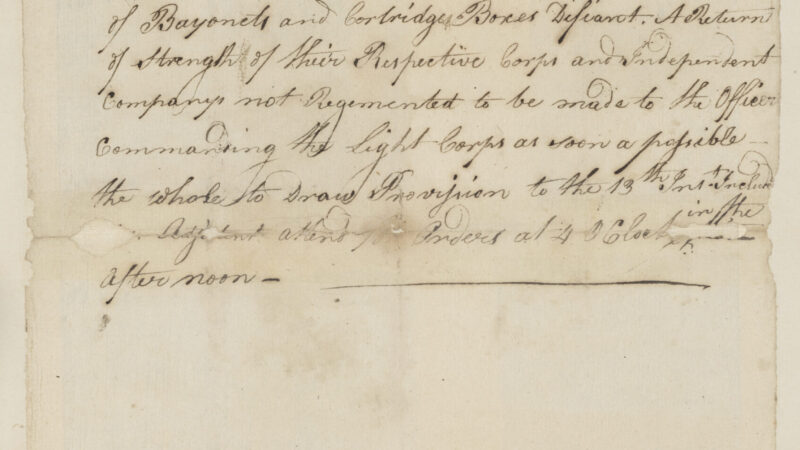 of Bayonets and Cortridge Boxes Difiant. A Return
of Strength of their Respective Corps and Independent
Companys not Regemented to be made to the Officer
Commanding the Light Corps as soon a possible
the whole to Draw Provision to the 13th Inst Includ
Adjutant attend Orders at 4 OClock in the
After noon —